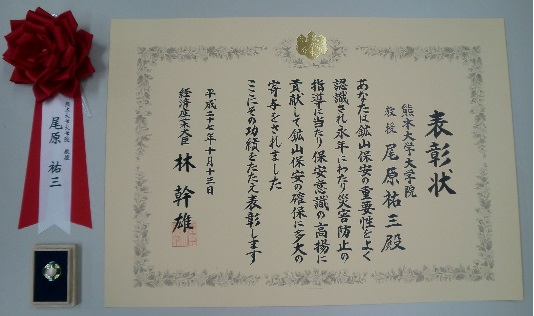 表彰状
熊本大学大学院
教授 尾原祐三殿
あなたは鉱山保安の重要性をよく
認識され永年にわたり災害防止の
指導に当たり保安意識の高揚に
貢献して鉱山保安の確保に多大の
寄与をされました
ここにその功績をたたえ表彰します
平成二十七年十月十三日
経済産業大臣 林幹雄
熊本大学大学院 教授
尾原 祐三